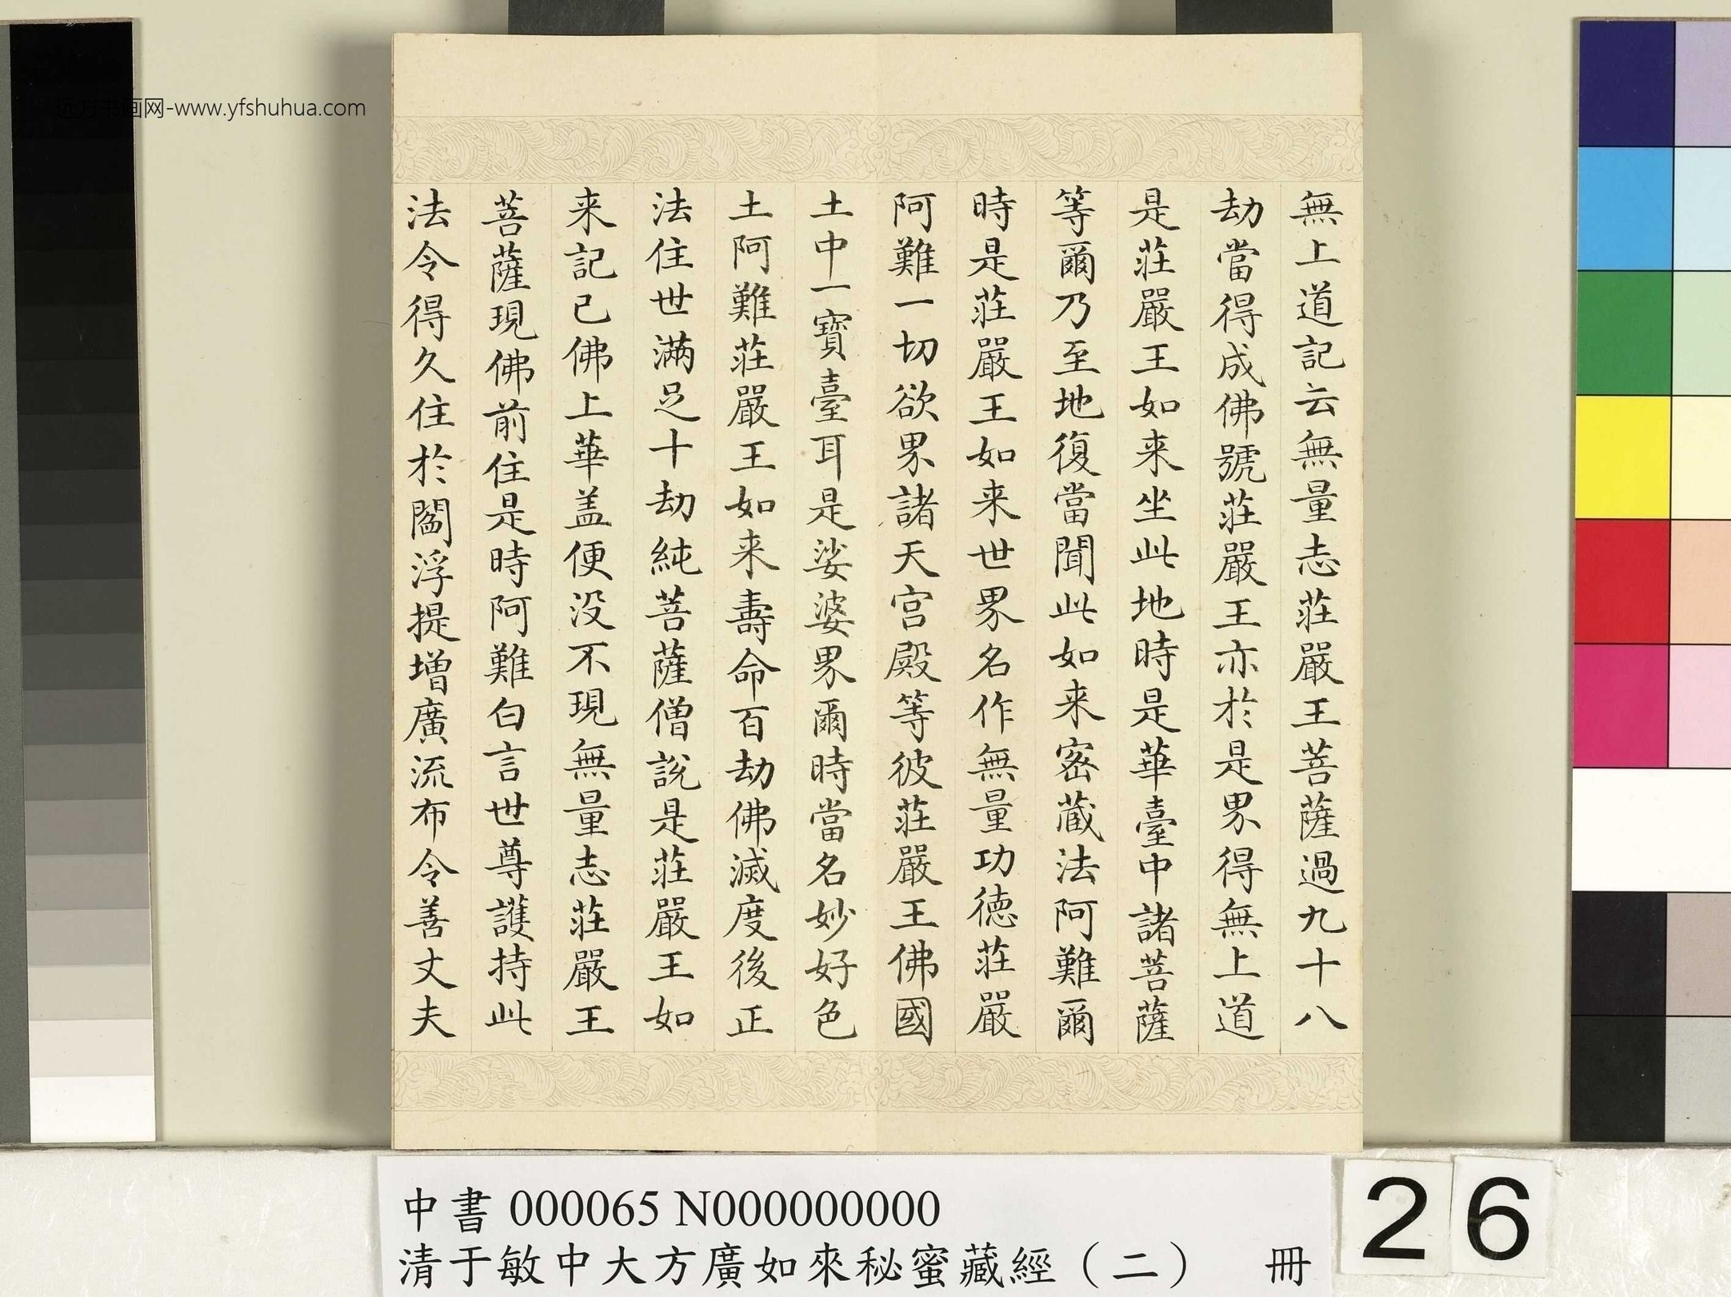 无上道記云無量志莊嚴王菩薩過九十八
劫當得成佛號莊嚴王亦於是界得無上道
是莊嚴王如来坐此地時是華臺中諸菩薩
等爾乃至地復當聞此如来密蔵法阿難爾
時是莊嚴王如来世界名作無量功德莊嚴
阿難一切欲界諸天宫殿等彼莊嚴王佛國
土中一寶臺耳是娑婆界爾時當名妙好色
土阿難莊嚴王如来壽命百劫佛滅度後正
法住世滿足十劫純菩薩僧説是莊嚴王如
来記已佛上華盖便没不現無量志莊嚴王
菩薩現佛前住是時阿難白言世尊護持此
法令得久住於閻浮提增廣流布令善丈夫
网-www.yfshuhua.com
中書 000065 N000000000
清于敏中大方廣如來秘蜜藏經（二） 冊
26